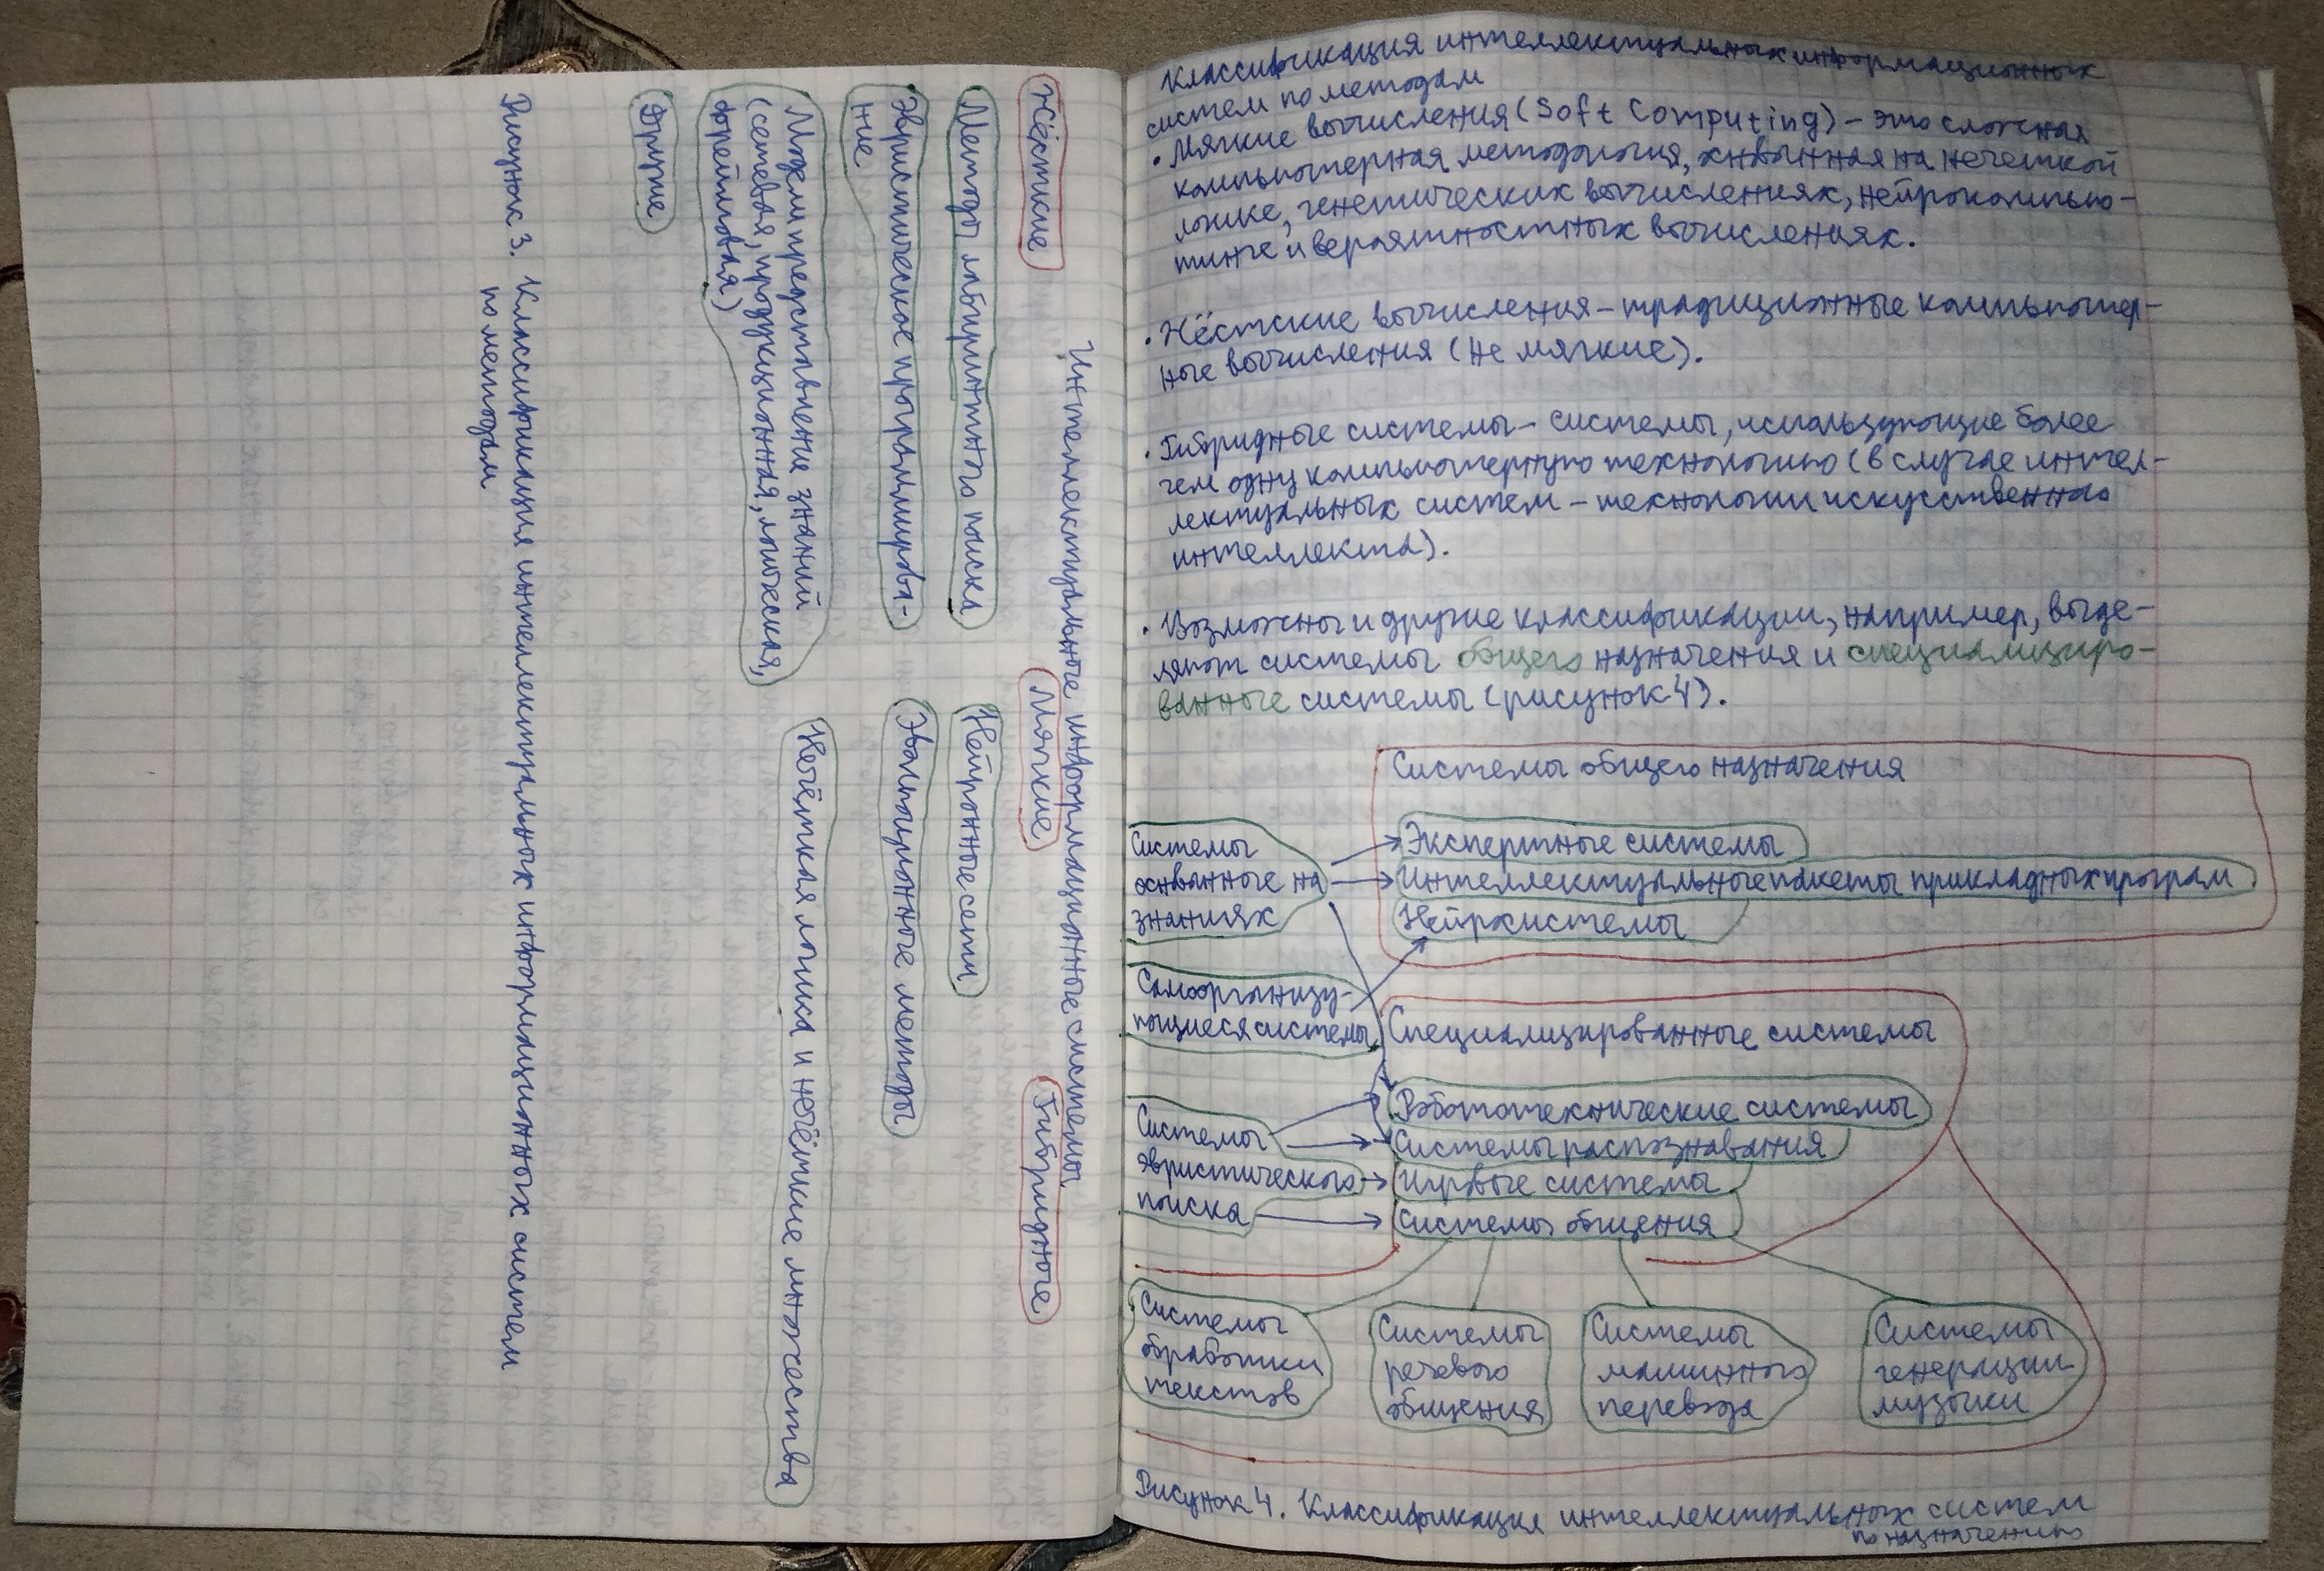 Интеллектуальные информационные системы
Жёсткие
Мягкие
Гибридные
Методы лабиринтного поиска
Эвристическое программирова-
ние
Модели представление знаний
(сетевая, продукционная, логическая,
фреймовая)
Другие
Нейронные сети
Эволюционные методы
Нечёткая логика и нечёткие множества
Рисунок 3. Классификация интеллектуальных информационных систем
по методам
Классификация интеллектуальных информационных
систем по методам
• Мягкие вычисления (Soft Computing) – это сложная
компьютерная методология, основанная на нечеткой
логике, генетических вычислениях, нейрокомпью-
тинге и вероятностных вычислениях.
• Жёсткие вычисления – традиционные компьютер-
ные вычисления (не мягкие).
• Гибридные системы – системы, использующие более
чем одну компьютерную технологию (в случае интел-
лектуальных систем – технологии искусственного
интеллекта).
• Возможны и другие классификации, например, выде-
ляют системы общего назначения и специализиро-
ванные системы (рисунок 4).
Системы общего назначения
Системы
основанные на
знаниях
Экспертные системы
Интеллектуальные пакеты прикладных програм
Нейросистемы
Самоорганизу-
ющиеся системы
Специализированные системы
Системы
эвристического
поиска
Робототехнические системы
Системы распознавания
Игровые системы
Системы общения
Системы
обработки
текстов
Системы
речевого
общения
Системы
машинного
перевода
Системы
генерации
музыки
Рисунок 4. Классификация интеллектуальных систем
по назначению